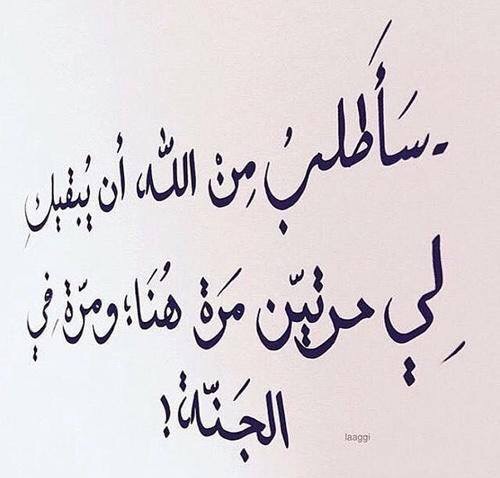 -سَأَطلبُ مِنْ الله، أن يُبقيكِ
لِي مرتيّن مَرة هُنَا؛ ومرّة فِي
الجَنّة!
laaggi